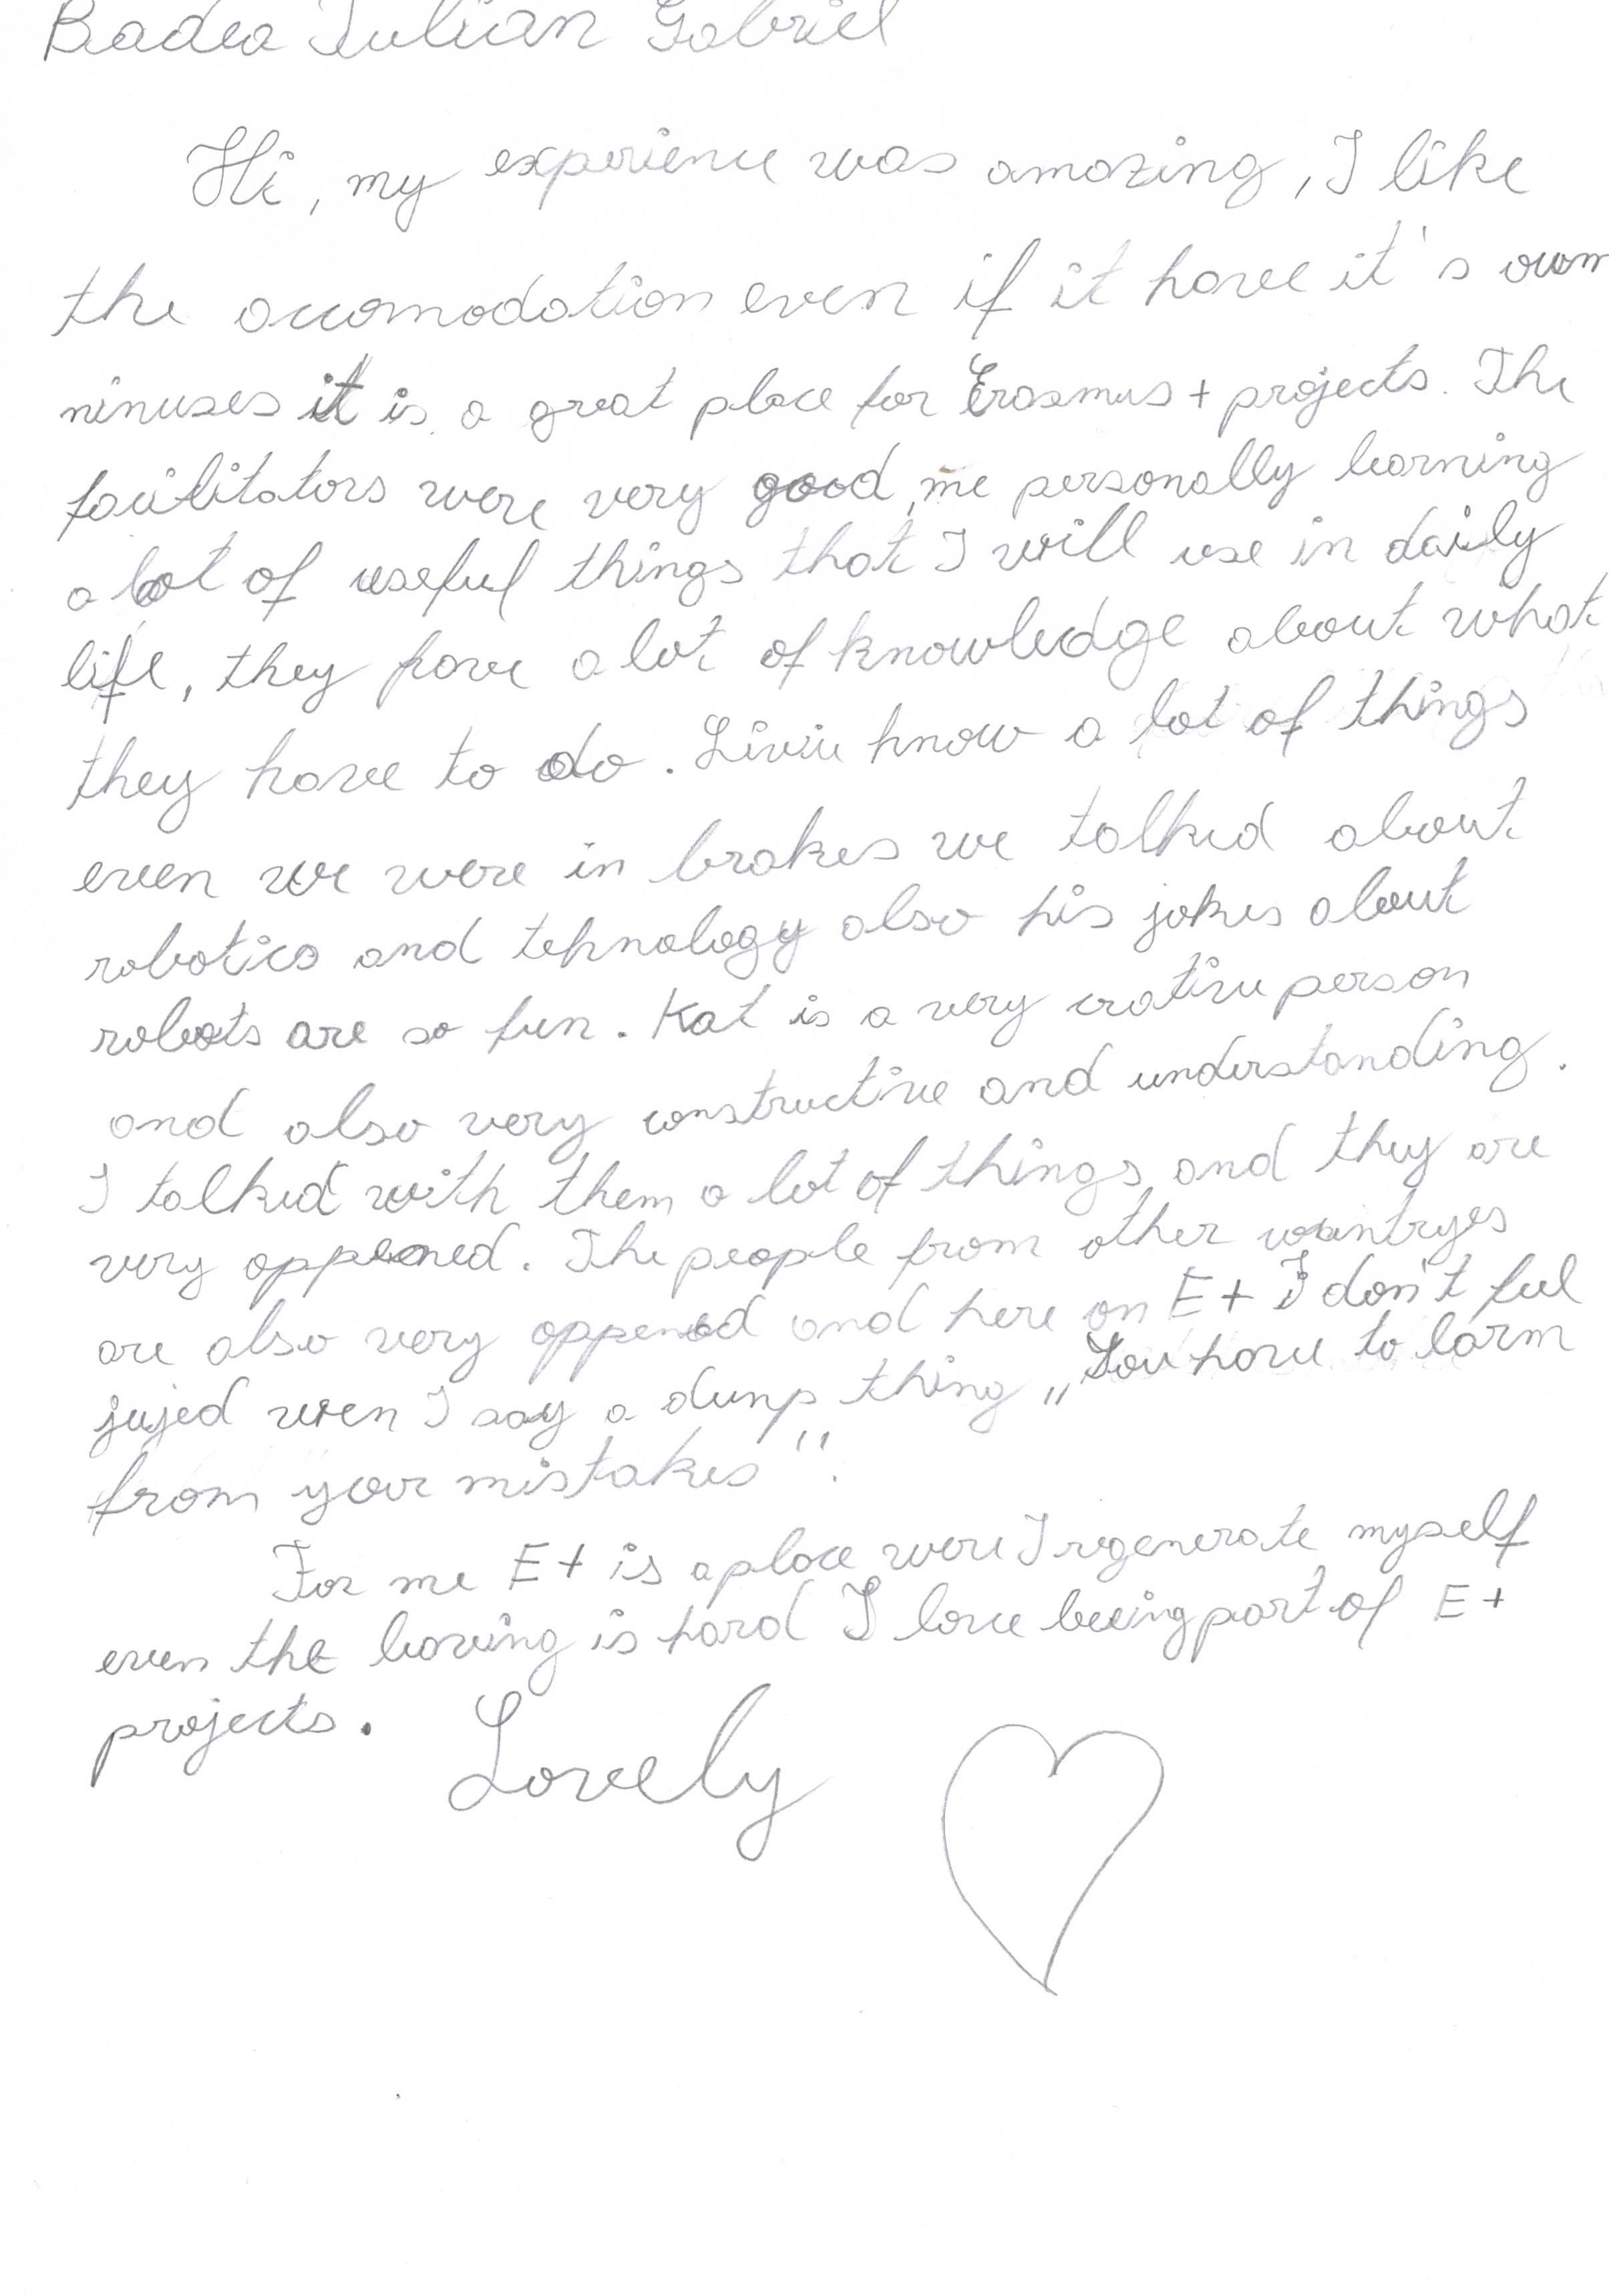 Badea Iulian Gabriel
Hi, my experience was amazing, I like
the accomodation even if it have it's own
minuses it is a great place for Erasmus + projects. The
facilitators were very good, me personally learning
a lot of useful things that I will use in daily
life, they have a lot of knowledge about what
they have to do. Liviu know a lot of things
even we were in brakes we talked about
robotics and tehnology also his jokes about
robots are so fun. Kat is a very crative person
and also very constructive and understanding.
I talked with them a lot of things and they are
very oppened. The people from other countryes
are also very oppened and here on E+ I don't feel
jujed wen I say a dump thing „You have to larm
from your mistakes".
For me E+ is a place were I regenerate myself
even the leaving is hard I love beeing part of E+
projects.
Lovely